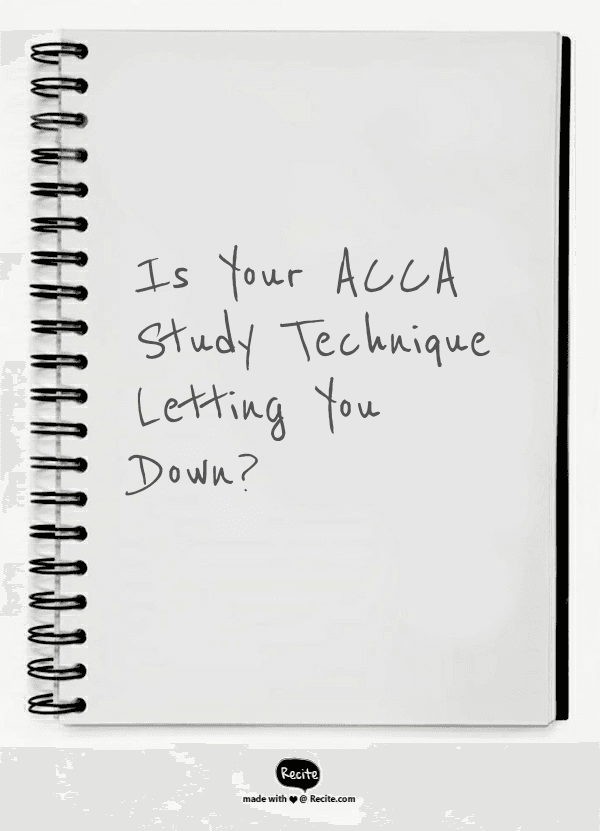 Is Your ACCA
Study Technique
Letting You
Down?
Recite
made with ♥ @ Recite.com